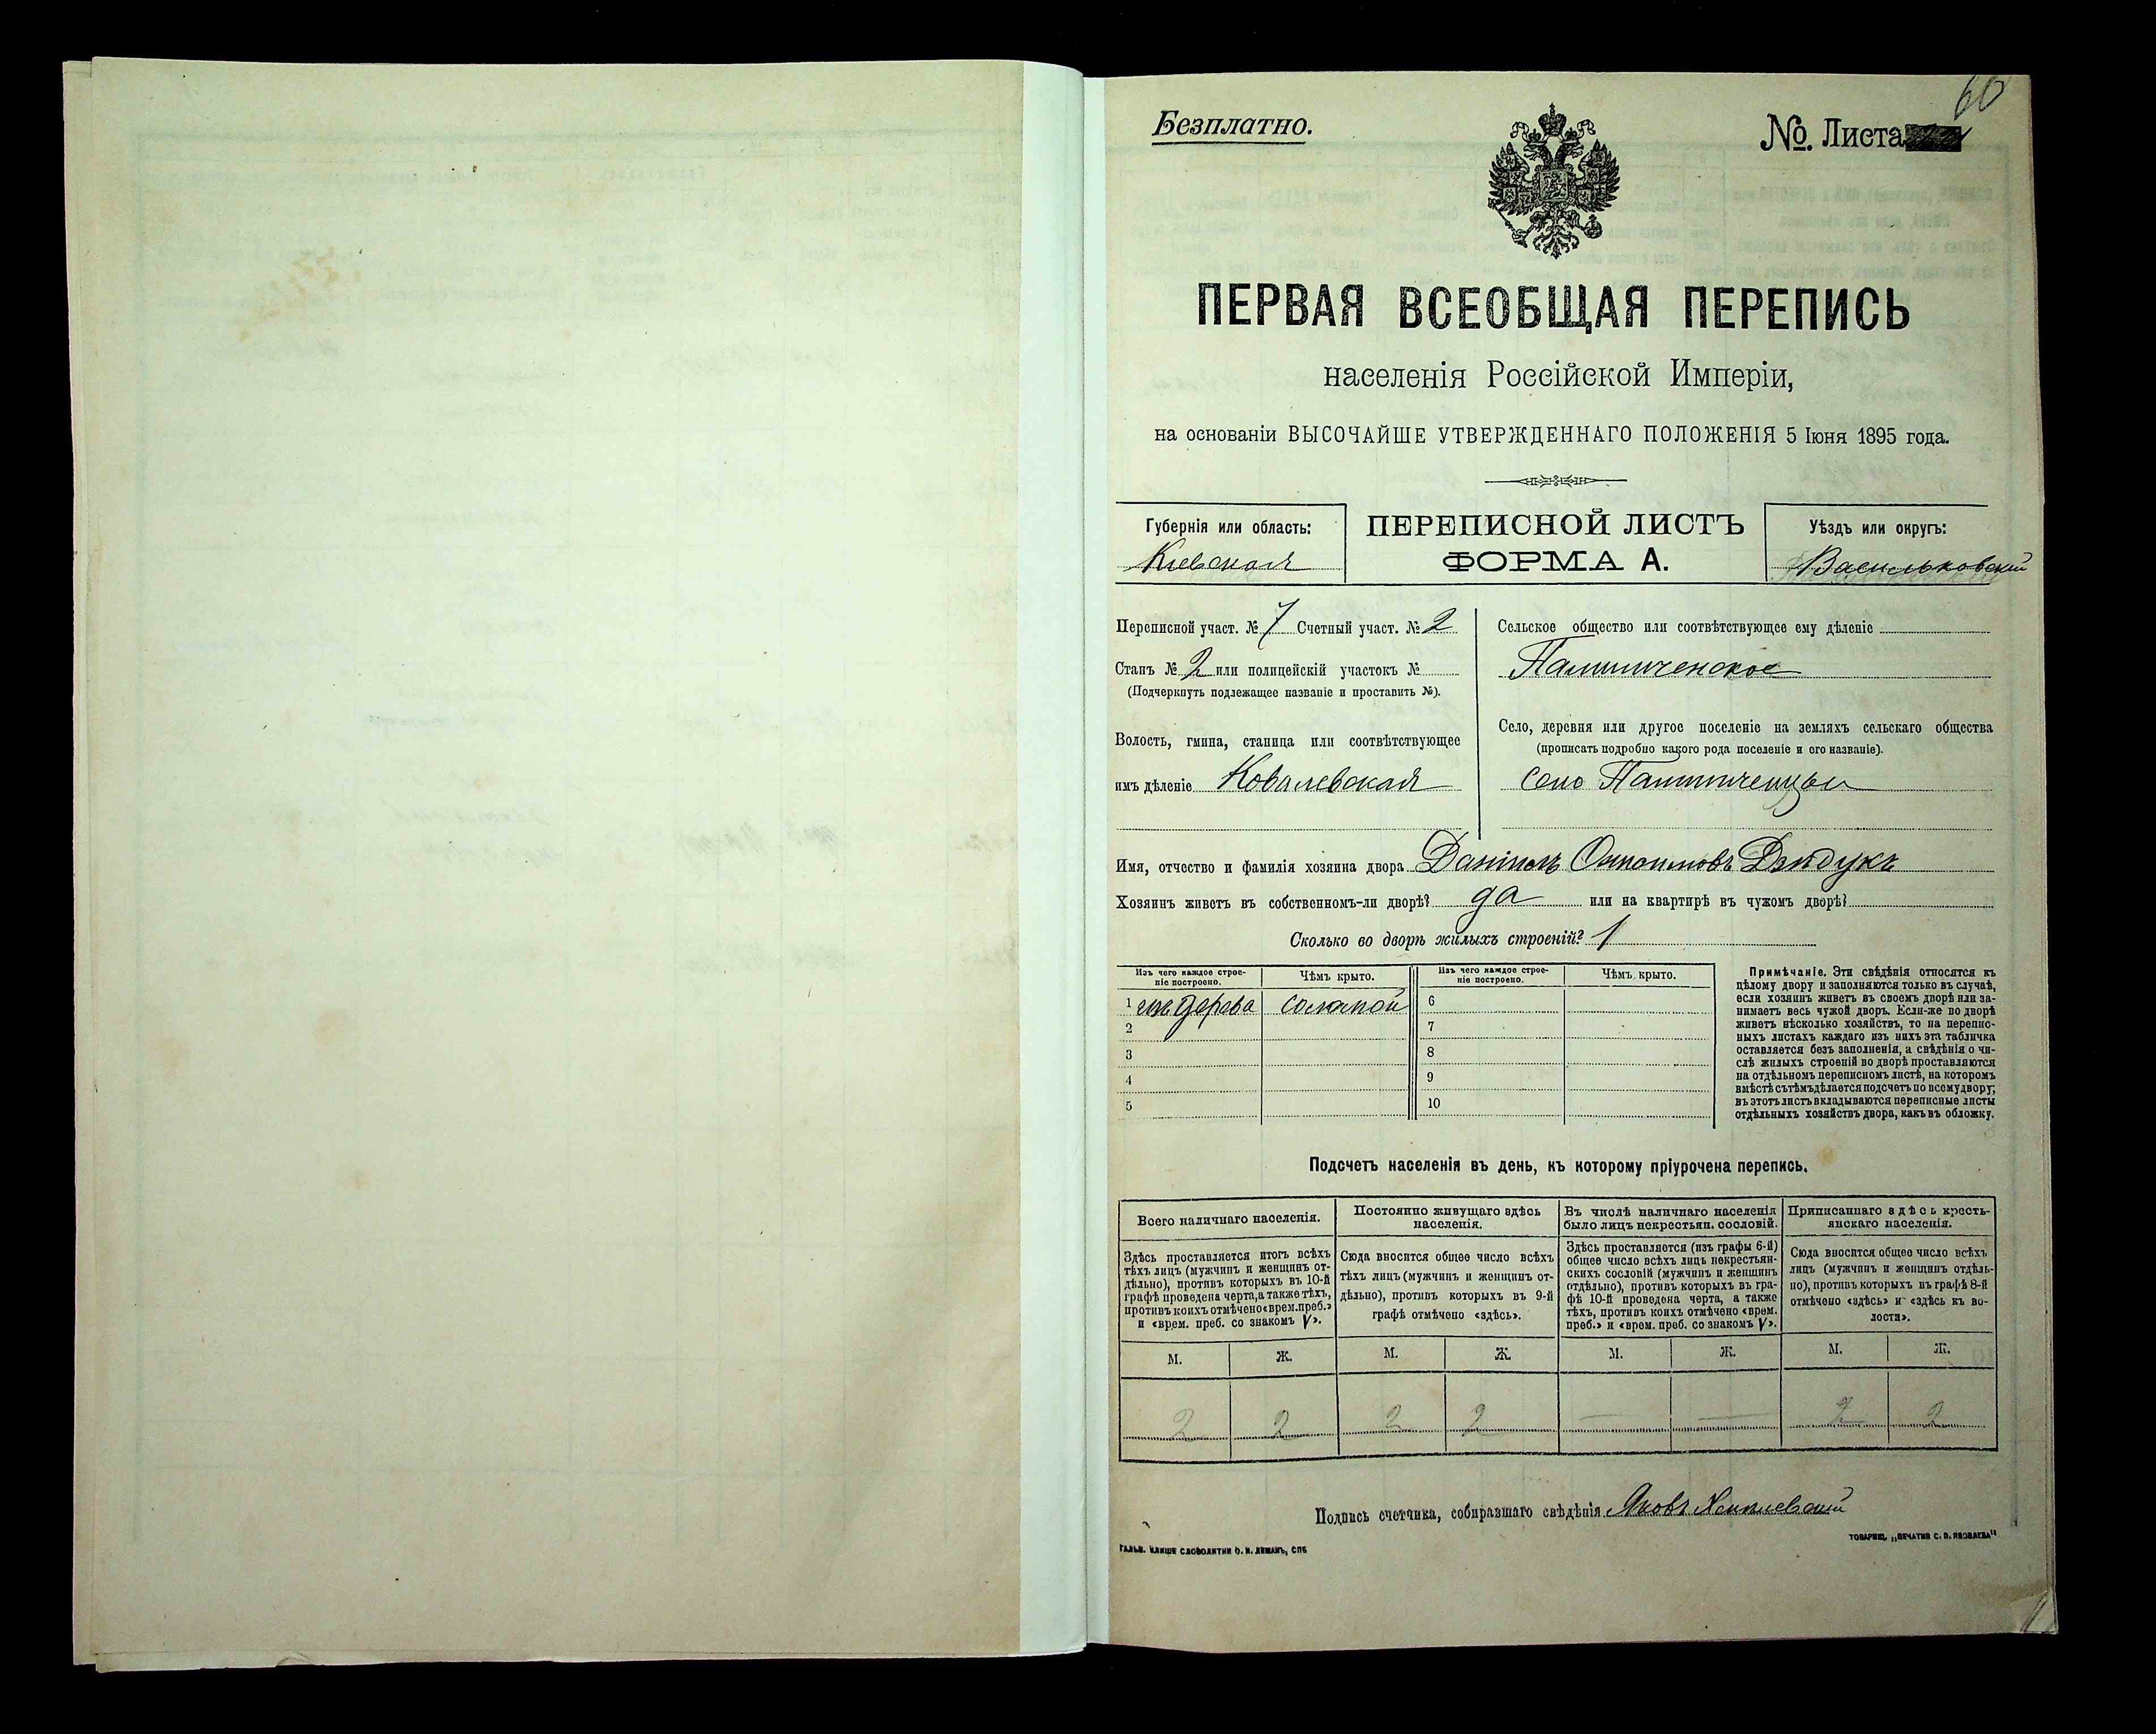 60
Безплатно.
№. Листа
ПЕРВАЯ ВСЕОБЩАЯ ПЕРЕПИСЬ
населенія Россійской Имперіи,
на основаніи ВЫСОЧАЙШЕ УТВЕРЖДЕННАГО ПОЛОЖЕНІЯ 5 Іюня 1895 года.
Губернія или область:
Кіевская
ПЕРЕПИСНОЙ ЛИСТЪ
ФОРМА А.
Уѣздъ или округъ:
Васильковскій
Переписной участ. № 7 Счетный участ. № 2
Станъ № 2 или полицейскій участокъ №
(Подчеркнуть подлежащее названіе и проставить №).
Волость, гмина, станица или соотвѣтствующее
имъ дѣленіе Ковалевская
Сельское общество или соотвѣтствующее ему дѣленіе
Пампиченское
Село, деревня или другое поселеніе на земляхъ сельскаго общества
(прописать подробно какого рода поселеніе и его названіе).
село
Имя, отчество и фамилія хозяина двора Даніилъ
Хозяинъ живетъ въ собственномъ-ли дворѣ? да или на квартирѣ въ чужомъ дворѣ?
Сколько во дворѣ жилыхъ строеній? 1
Изъ чего каждое строе-
ніе построено.
Чѣмъ крыто.
1 изъ дерева соломой
2
3
4
5
Изъ чего каждое строе-
ніе построено.
Чѣмъ крыто.
6
7
8
9
10
Примѣчаніе. Эти свѣдѣнія относятся къ
цѣлому двору и заполняются только въ случаѣ,
если хозяинъ живетъ въ своемъ дворѣ или за-
нимаетъ весь чужой дворъ. Если-же во дворѣ
живетъ нѣсколько хозяйствъ, то на перепис-
ныхъ листахъ каждаго изъ нихъ эта табличка
оставляется безъ заполненія, а свѣдѣнія о чи-
слѣ жилыхъ строеній во дворѣ проставляются
на отдѣльномъ переписномъ листѣ, на которомъ
вмѣстѣ съ тѣмъ дѣлается подсчетъ по всему двору;
въ этотъ листъ вкладываются переписные листы
отдѣльныхъ хозяйствъ двора, какъ въ обложку.
Подсчетъ населенія въ день, къ которому пріурочена перепись.
Всего наличнаго населенія.
Здѣсь проставляется итогъ всѣхъ
тѣхъ лицъ (мужчинъ и женщинъ от-
дѣльно), противъ которыхъ въ 10-й
графѣ проведена черта, а также тѣхъ,
противъ коихъ отмѣчено «врем. преб.»
и «врем. преб. со знакомъ V».
М. Ж.
2 2
Постоянно живущаго здѣсь
населенія.
Сюда вносится общее число всѣхъ
тѣхъ лицъ (мужчинъ и женщинъ от-
дѣльно), противъ которыхъ въ 9-й
графѣ отмѣчено «здѣсь».
М. Ж.
2 2
Въ числѣ наличнаго населенія
было лицъ некрестьян. сословій.
Здѣсь проставляется (изъ графы 6-й)
общее число всѣхъ лицъ некрестьян-
скихъ сословій (мужчинъ и женщинъ
отдѣльно), противъ которыхъ въ гра-
фѣ 10-й проведена черта, а также
тѣхъ, противъ коихъ отмѣчено «врем.
преб.» и «врем. преб. со знакомъ V».
М. Ж.
— —
Приписаннаго здѣсь кресть-
янскаго населенія.
Сюда вносится общее число всѣхъ
лицъ (мужчинъ и женщинъ отдѣль-
но), противъ которыхъ въ графѣ 8-й
отмѣчено «здѣсь» и «здѣсь къ во-
лости».
М. Ж.
2 2
Подпись счетчика, собиравшаго свѣдѣнія Яковъ
ГАЛЬВ. КЛИШЕ СЛОВОЛИТНИ О. И. ЛЕМАНЪ, СПБ
ТОВАРИЩ. „ПЕЧАТНЯ С. П. ЯКОВЛЕВА"